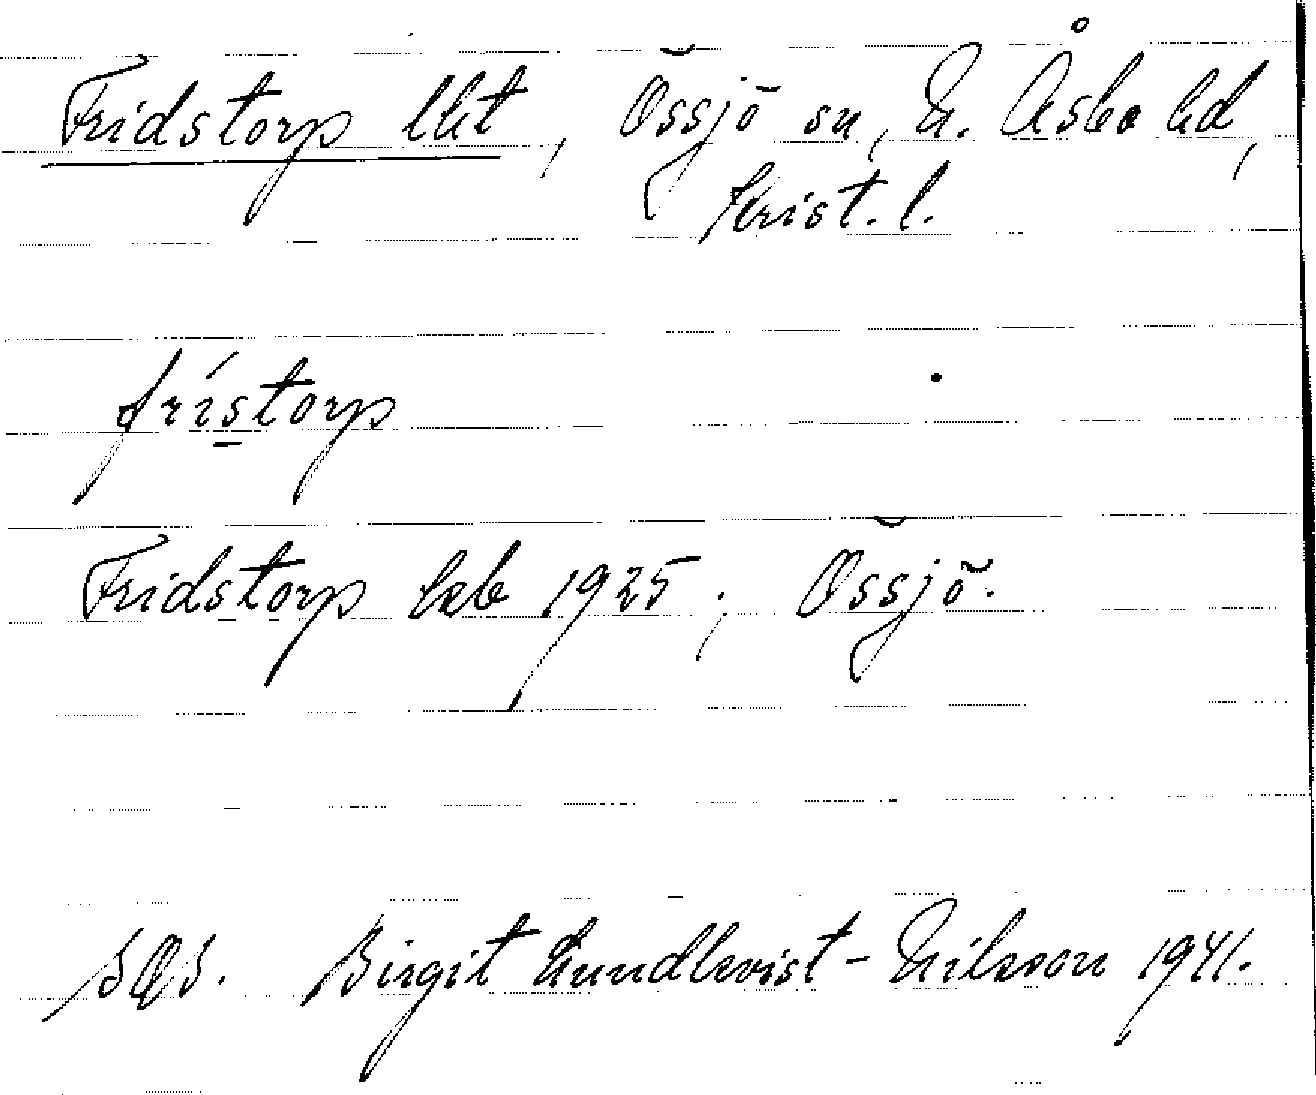 Fridstorp lht, Össjö sn, N. Åsbo hd,
Krist. l.
frístorp
Fridstorp hsb 1925; Össjö.
Birgit Lundkvist-Nilsson 1941.